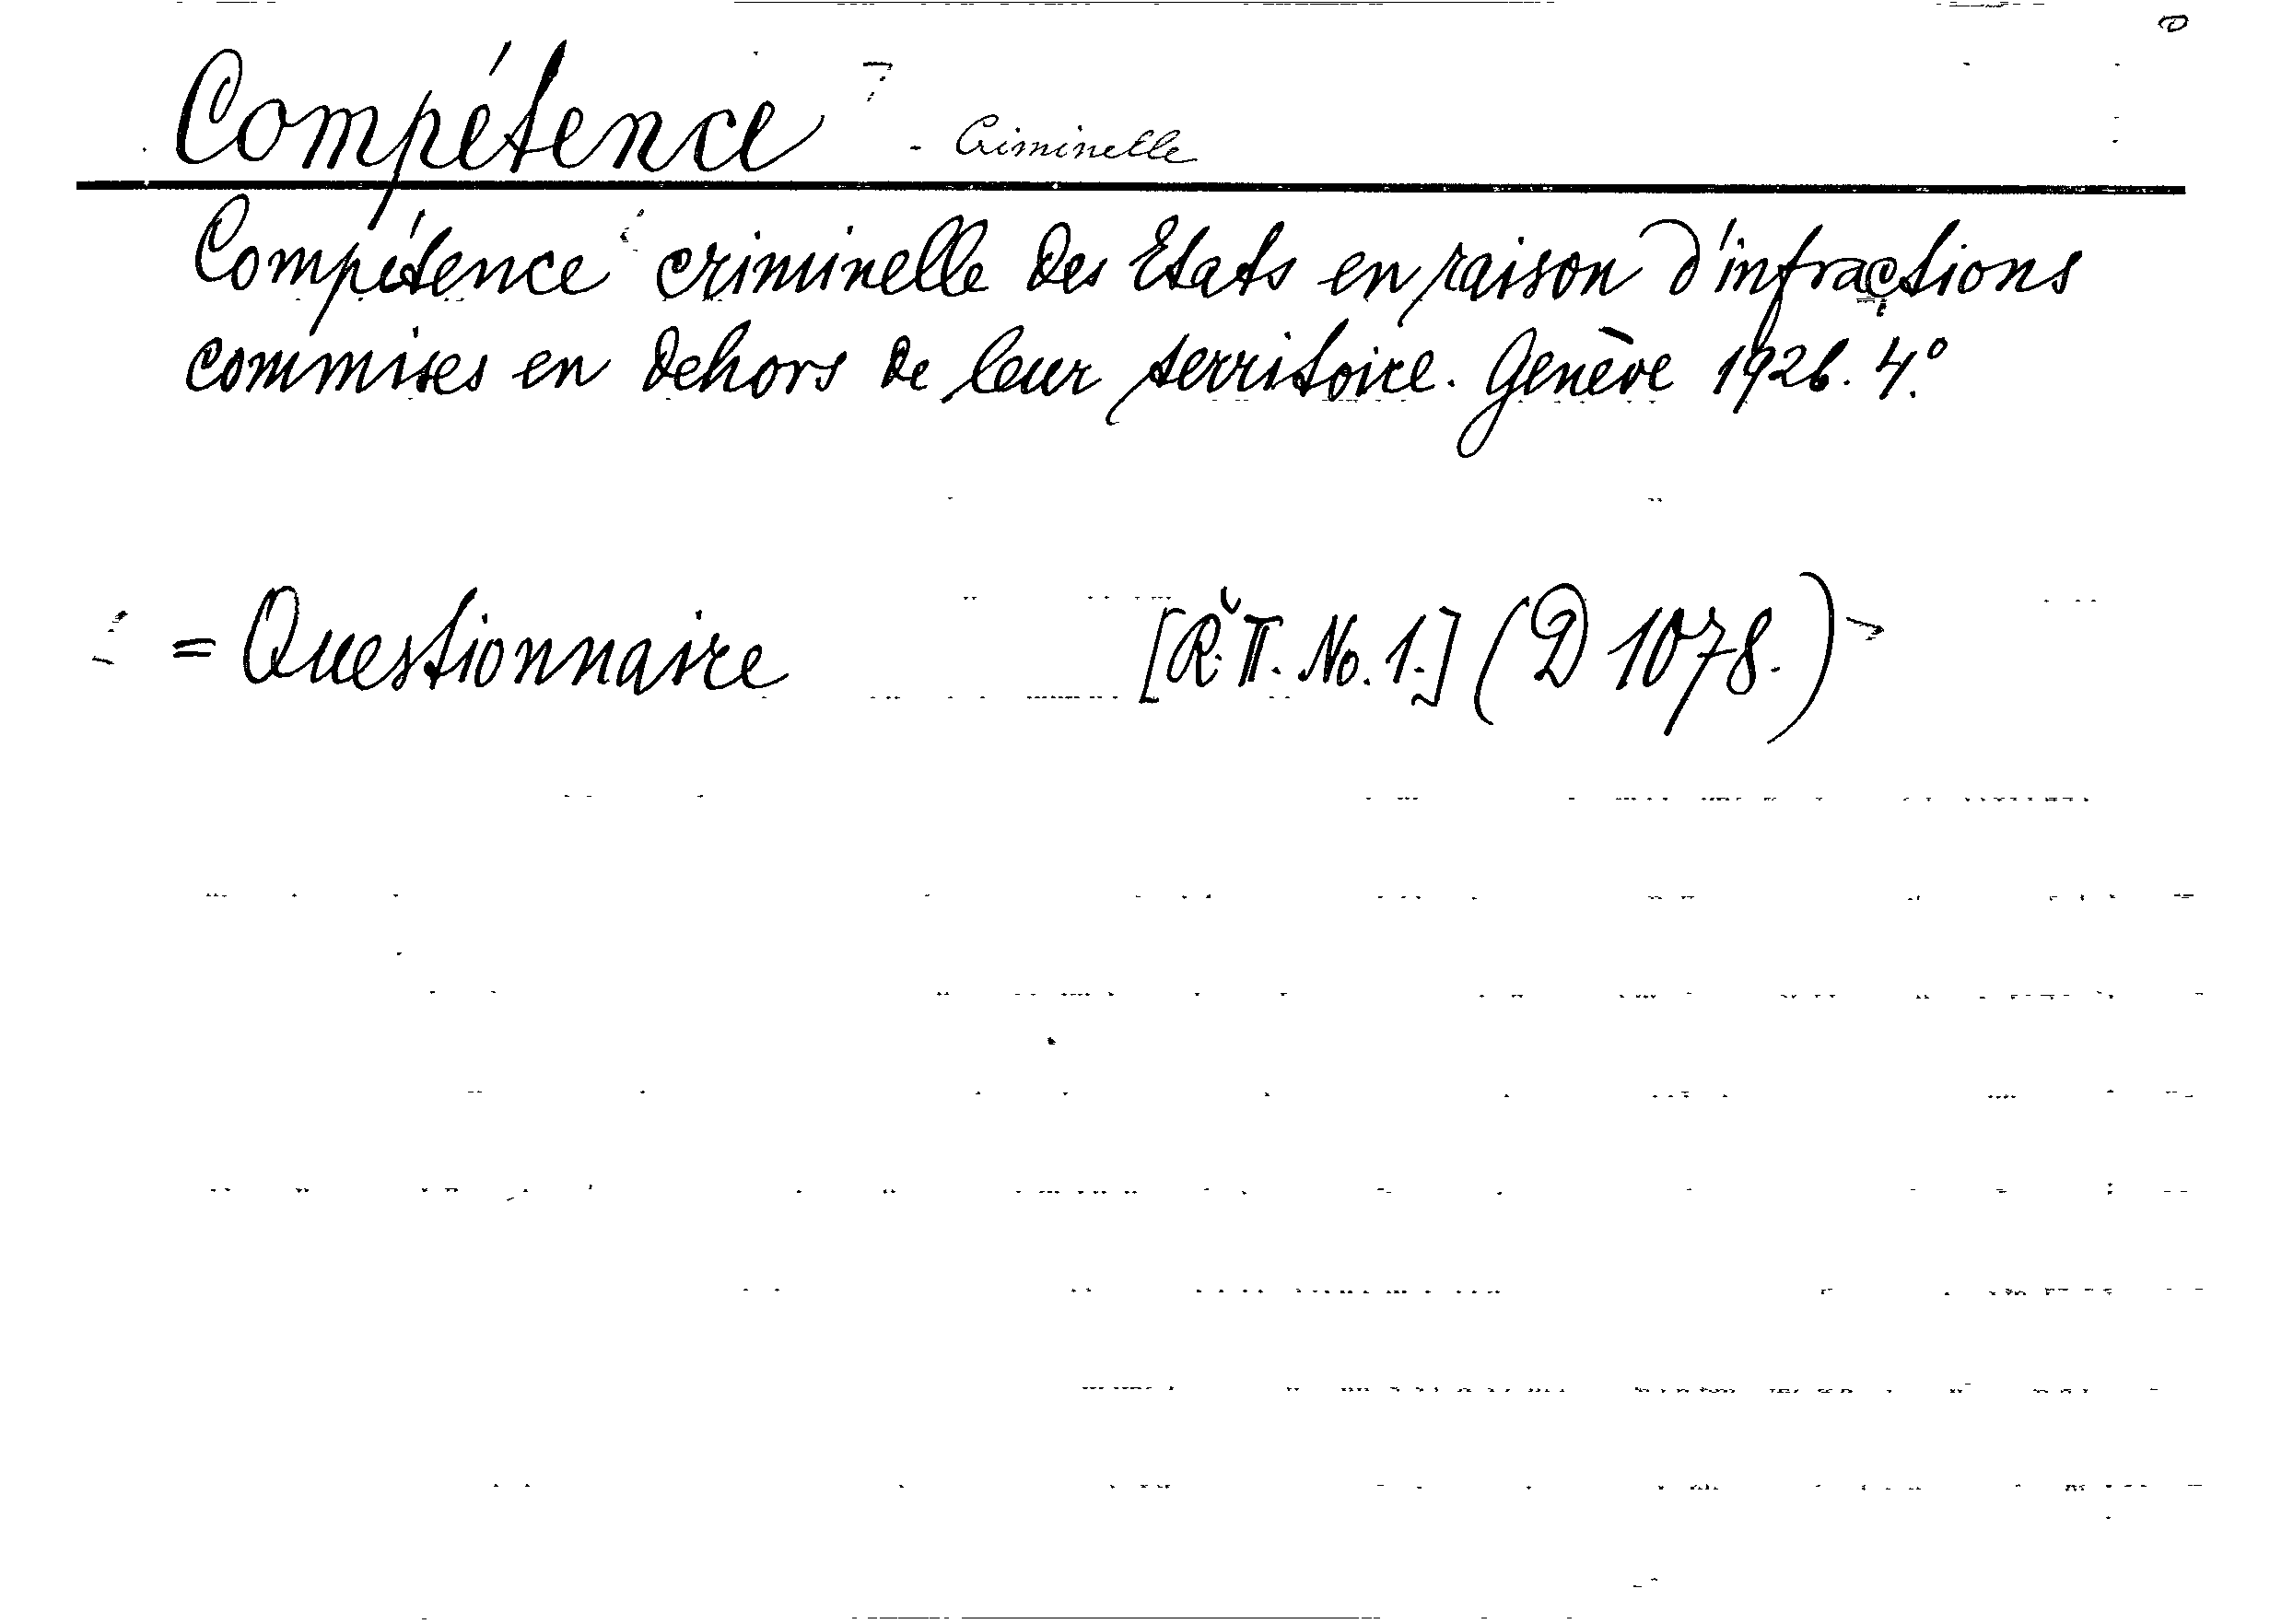 Compétence - Criminelle
Compétence criminelle des Etats en raison d'infractions
commises en dehors de leur territoire. Genève 1926. 4.°
= Questionnaire [Ř. II. No. 1.] (D 1078.)